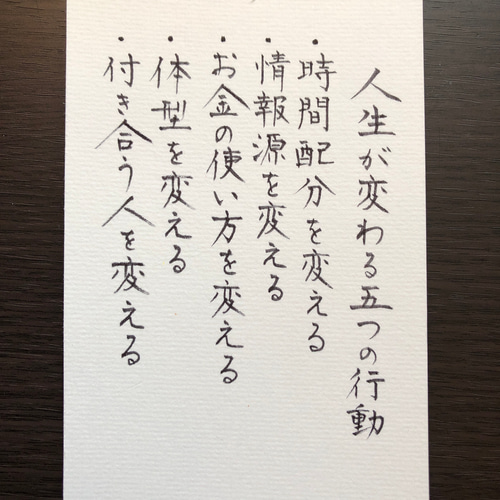 人生が変わる五つの行動
・時間配分を変える
・情報源を変える
・お金の使い方を変える
・体型を変える
・付き合う人を変える